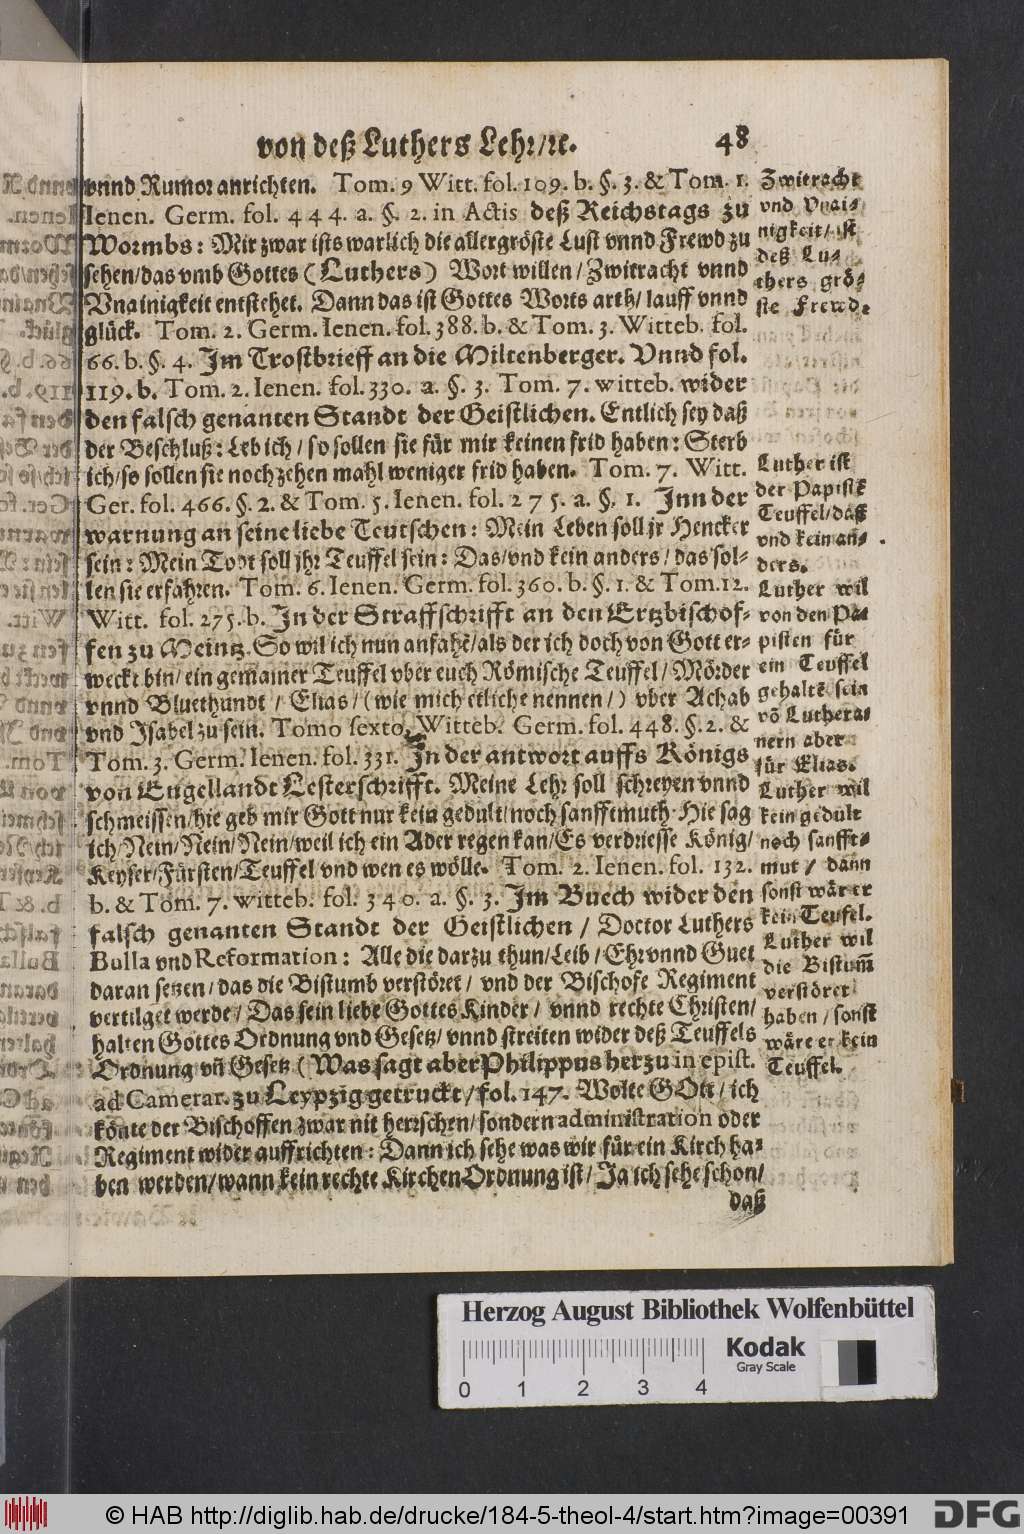 von deß Luthers Lehr/ꝛc. 48
vnnd Rumor anrichten. Tom. 9 Witt. fol. 109. b. §. 3. & Tom. 1.
Ienen. Germ. fol. 444. a. §. 2. in Actis deß Reichstags zu
Wormbs: Mir zwar ists warlich die allergröste Lust vnnd Frewd zu
sehen/das vmb Gottes (Luthers) Wort willen/Zwitracht vnnd
Vnainigkeit entstehet. Dann das ist Gottes Worts arth/lauff vnnd
glück. Tom. 2. Germ. Ienen. fol. 388. b. & Tom. 3. Witteb. fol.
66. b. §. 4. Im Trostbrieff an die Miltenberger. Vnnd fol.
119. b. Tom. 2. Ienen. fol. 330. a. §. 3. Tom. 7. witteb. wider
den falsch genanten Standt der Geistlichen. Entlich sey daß
der Beschluß: Leb ich/so sollen sie für mir keinen frid haben: Sterb
ich/so sollen sie noch zehen mahl weniger frid haben. Tom. 7. Witt.
Ger. fol. 466. §. 2. & Tom. 5. Ienen. fol. 275. a. §. 1. Inn der
warnung an seine liebe Teutschen: Mein Leben soll jr Hencker
sein: Mein Todt soll jhr Teuffel sein: Das/vnd kein anders/das sol-
len sie erfahren. Tom. 6. Ienen. Germ. fol. 360. b. §. 1. & Tom. 12.
Witt. fol. 275. b. In der Straffschrifft an den Ertzbischof-
fen zu Meintz. So wil ich nun anfahē/als der ich doch von Gott er-
weckt bin/ein gemainer Teuffel vber euch Römische Teuffel/Mörder
vnnd Bluethundt/Elias/(wie mich etliche nennen/) vber Achab
vnd Isabel zu sein. Tomo sexto, Witteb. Germ. fol. 448. §. 2. &
Tom. 3. Germ. Ienen. fol. 331. In der antwort auffs Königs
von Engellandt Lesterschrifft. Meine Lehr soll schreyen vnnd
schmeissen/hie geb mir Gott nur kein gedult/noch sanfftmuth. Hie sag
ich/Nein/Nein/Nein/weil ich ein Ader regen kan/Es verdriesse König/
Keyser/Fürsten/Teuffel vnd wen es wölle. Tom. 2. Ienen. fol. 132.
b. & Tom. 7. witteb. fol. 340. a. §. 3. Im Buech wider den
falsch genanten Standt der Geistlichen/Doctor Luthers
Bulla vnd Reformation: Alle die darzu thun/Leib/Ehr vnnd Guet
daran setzen/das die Bistumb verstöret/vnd der Bischofe Regiment
vertilget werde/Das sein liebe Gottes Kinder/vnnd rechte Christen/
halten Gottes Ordnung vnd Gesetz/vnnd streiten wider deß Teuffels
Ordnung vñ Gesetz (Was sagt aber Philippus herzu in epist.
ad Camerar. zu Leypzig getruckt/fol. 147. Wolte GOtt/ich
könte der Bischoffen zwar nit herrschen/sondern administration oder
Regiment wider auffrichten: Dann ich sehe was wir für ein Kirch ha-
ben werden/wann kein rechte Kirchen Ordnung ist/Ja ich sehe schon/
daß
Zwitracht
vnd Vnai-
nigkeit/ist
deß Lu-
thers grö-
ste Frewd.
Luther ist
der Papistē
Teuffel/daß
vnd kein an-
ders.
Luther wil
von den Pa-
pisten für
ein Teuffel
gehaltē sein
vō Luthera-
nern aber
für Elias.
Luther wil
kein gedult
noch sanfft-
mut/dann
sonst wär er
kein Teufel.
Luther wil
die Bistum̄
verstöret
haben/sonst
wäre er kein
Teuffel.
Herzog August Bibliothek Wolfenbüttel
Kodak
Gray Scale
0 1 2 3 4
© HAB http://diglib.hab.de/drucke/184-5-theol-4/start.htm?image=00391
DFG